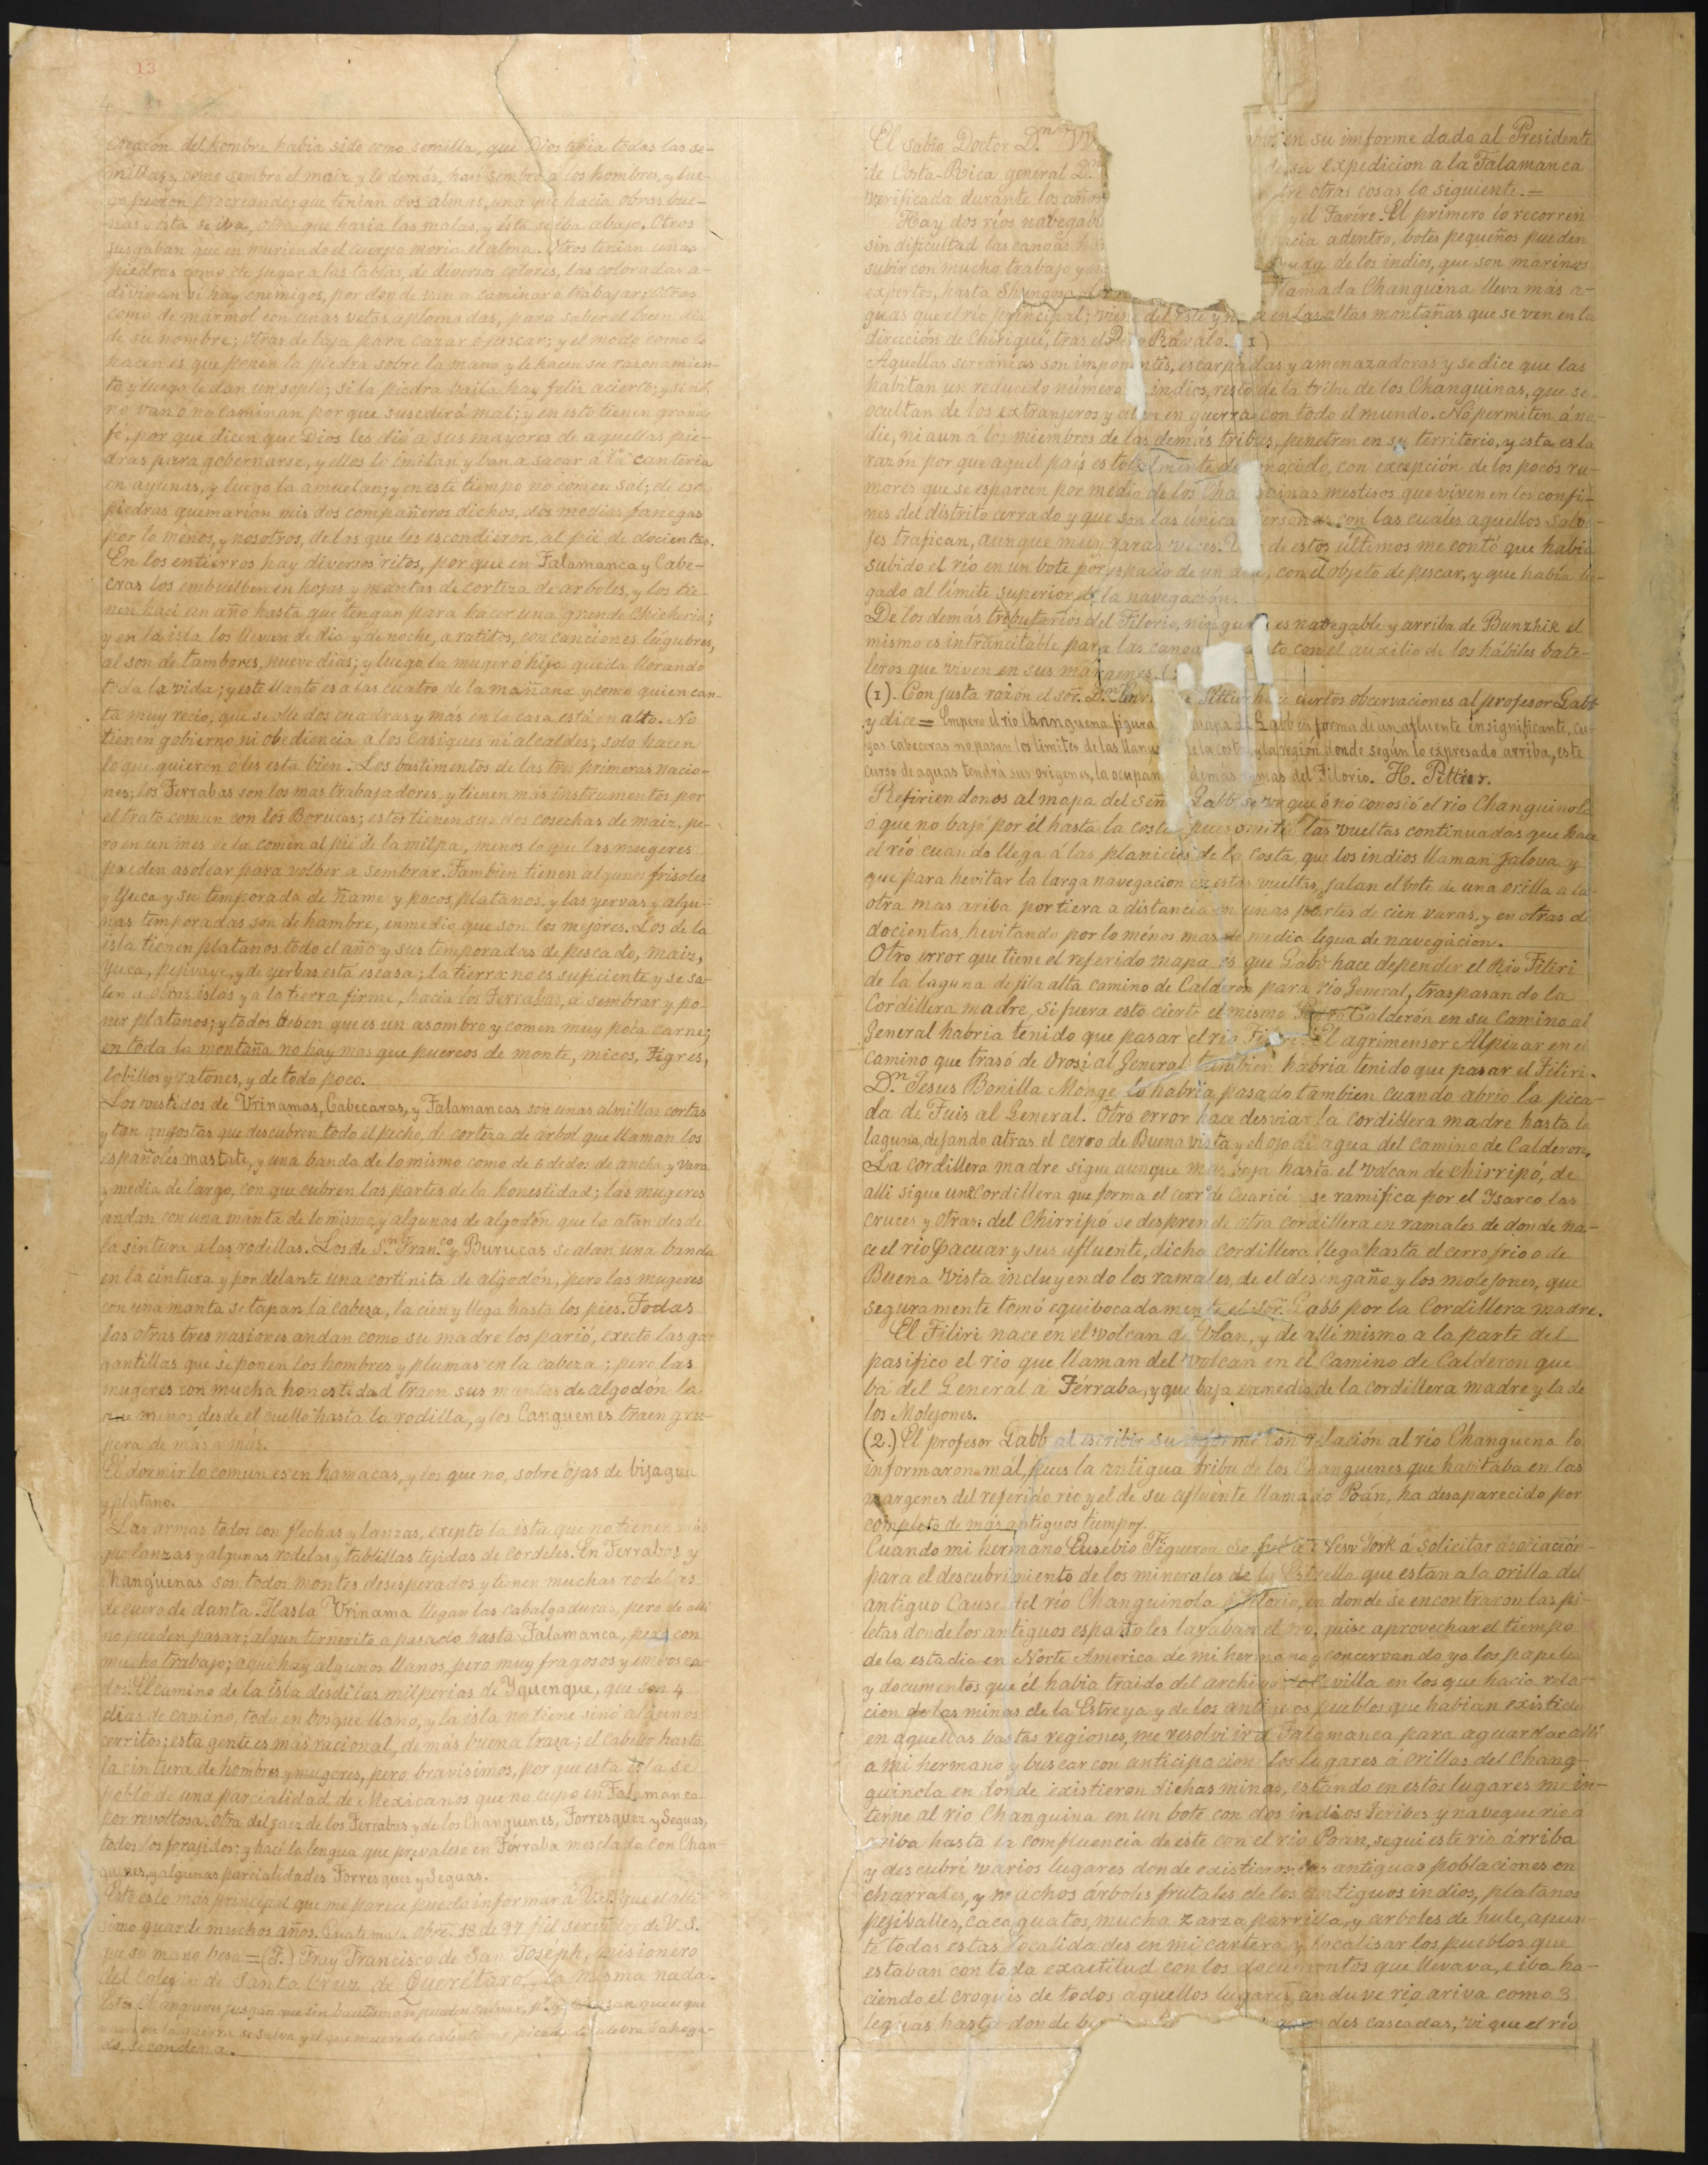 13
4
Creacón del hombre habia sido como semilla, que Dios tenia todas las se-
millas y como sembro el maiz y lo demás, hasi sembro a los hombres, y lue-
go fueron procreando; que tenian dos almas, una que hacia obras bue-
nas y ésta se iba, otra que hasia las malas, y ésta se iba abajo. Otros
jusgaban que en muriendo el cuerpo moria el alma. Otros tenian unas
piedras como de jugar a las tablas, de diversos colores, las coloradas a-
divinan si hay enemigos, por donde van a caminar ó trabajar; otras
como de mármol con unas vetas aplomadas, para saber el buen dia
de su nombre; otras de laja para cazar ó pescar; y el modo como lo
hacen es que ponen la piedra sobre la mano y le hacen su razonamien-
to y luego le dan un soplo; si la piedra baila hay feliz acierto; y si nó,
no van o no caminan por que susederá mal; y en esto tienen grande
fe, por que dicen que Dios les dió a sus mayores de aquellas pie-
dras para gobernarse, y ellos lo imitan y ban a sacar á la canteria
en ayunas, y luego la amuelan; y en este tiempo no comen sal; de esas
piedras quemarian mis dos compañeros dichos, dos medias fanegas
por lo ménos, y nosotros, de las que les escondieron, al pié de docientas.
En los entierros hay diversos ritos, por que en Talamanca y Cabe-
cras los embuelben en hojas y mantas de corteza de arboles, y los tie-
nen haci un año hasta que tengan para hacer una grande Chicheria;
y en la isla los llevan de dia y de noche, a ratitos, con canciones lúgubres,
al son de tambores, nueve dias; y luego la muger ó hija queda llorando
toda la vida; y este llanto es a las cuatro de la mañana y como quien can-
ta muy recio, que se olle dos cuadras y más en la casa está en alto. No
tienen gobierno ni obediencia a los Casiques ni alcaldes; solo hacen
lo que quieren o les esta bien. Los bastimentos de las tres primeras nacio-
nes; los Terrabas son los mas trabajadores, y tienen más instrumentos por
el trato comun con los Borucas; estos tienen sus dos cosechas de maiz, pe-
ro en un mes se la comen al pié de la milpa, menos lo que las mugeres
pueden asolear para volber a sembrar. Tambien tienen algunos frisoles
y Yuca y su temporada de ñame y pocos platanos, y las yervas y algu-
nas temporadas son de hambre, enmedio que son los mejores. Los de la
isla tienen platanos todo el año y sus temporadas de pescado, maiz,
yuca, pejivaye, y de yerbas está escasa; la tierra no es suficiente y se sa-
len a otras islas y a la tierra firme, hacia los Terrabas, a sembrar y po-
ner platanos; y todos beben que es un asombro y comen muy poca carne;
en toda la montaña no hay mas que puercos de monte, micos, Tigres,
lobillos y ratones, y de todo poco.
Los vestidos de Urinamas, Cabecaras, y Talamancas son unas almillas cortas
y tan angostas que descubren todo el pecho, de corteza de árbol que llaman los
españoles mastate, y una banda de lo mismo como de 6 dedos de ancho y vara
y media de largo, con que cubren las partes de la honestidad; las mugeres
andan con una manta de lo mismo y algunas de algodón que lo atan desde
la sintura a las rodillas. Los de Sn. Fran.co y Burucas se atan una banda
en la cintura y por delante una cortinita de algodón, pero las mugeres
con una manta se tapan la cabeza, la cien y llega hasta los pies. Todas
las otras tres nasiones andan como su madre los parió, execto las ga-
gantillas que se ponen los hombres y plumas en la cabeza; pero las
mugeres con mucha honestidad traen sus mantas de algodón la
que menos desde el cuello hasta la rodilla, y los Canguenes traen gru-
pera de más a más.
El dormir lo comun es en hamacas, y los que no, sobre ojas de bijagua
y platano.
Las armas todos con flechas y lanzas, exepto la isla que no tienen más
que lanzas y algunas rodelas y tablillas tejidas de cordeles. En Terrabas y
Changuenas son todos montes desesperados y tienen muchas rodelas
de cuero de danta. Hasta Urinama llegan las cabalgaduras, pero de alli
no pueden pasar; algun ternerito a pasado hasta Talamanca, pero con
mucho trabajo; aqui hay algunos llanos, pero muy fragosos y embosca-
dos. El camino de la isla desde las milperias de Yquenque, que son 4
dias de camino, todo en bosque llano, y la isla no tiene sinó algunos
cerritos; esta gente es más racional, de más buena traza; el cabello hasta
la cintura de hombres y mugeres, pero bravisimos, por que esta isla se
pobló de una parcialidad de Mexicanos que no cupo en Talamanca
por revoltosa. Otra del jaez de los Terrabas y de los Changuenes, Torresquez y Seguas,
todos los forajidos: y haci la lengua que prevalese en Térraba mesclada con Chan-
guenes, y algunas parcialidades Torresques y Seguas.
Esto es lo mas principal que me parece puedo informar á V.S. que el alti-
simo guarde muchos años. Guatemala 18 de 97 de V.S.
que su mano besa = (F.) Fray Francisco de San Joséph, misionero
del Colegio de Santa Cruz de Querétaro, y la misma nada.
Estos Changuenes jusgan que sin bautismo se pueden salvar, que el que
muere en la guerra se salva y el que muere de calentura, picado de culebra ó ahoga-
do, se condena.
El sabio Doctor D.n W
en su imforme dado al Presidente
de Costa-Rica general D.n
de su expedicion a la Talamanca
verificada durante los años
otras cosas lo siguiente.=
Hay dos ríos navegab
y el Tarire. El primero lo recorren
sin dificultad las canoas has
hacia adentro, botes pequeños pueden
subir con mucho trabajo y
de los indios, que son marinos
expertos, hasta Shungosa
llamada Changuina lleva más a-
guas que el río principal; viene del Este y en las altas montañas que se ven en la
dirección de Chiriquí, tras el Róvalo. (1)
Aquellas serranias son imponentes, escarpadas y amenazadoras y se dice que las
habitan un reducido número indios, resto de la tribu de los Changuinas, que se
ocultan de los extranjeros y en guerra con todo el mundo. No permiten á na-
die, ni aun á los miembros de las demás tribus, penetren en su territorio, y esta es la
razón por que aquel país es totalmente desconocido, con excepción de los pocos ru-
mores que se esparcen por medio de los Changuinas mestisos que viven en los confi-
nes del distrito cerrado y que son las única personas con las cuáles aquellos salva-
jes trafican, aunque muy raras veces. de estos últimos me contó que habia
subido el rio en un bote por espacio de un con el objeto de pescar, y que había lle-
gado al límite superior de la navegación.
De los demás tributarios del Tilorio, ninguno es navegable y arriba de Bunzhik el
mismo es intrancitable para las canoas con el auxilio de los hábiles bate-
leros que viven en sus márgenes.
(1). Con justa razón el sor. D.n Enr Pittier hace ciertos obcervaciones al profesor Gabb
y dice= Empero el río Channguena figura mapa de Gabb en forma de un afluente insignificante, cu-
yas cabeceras no pasan los límites de las llanu de la costa, y la región donde según lo expresado arriba, este
curso de aguas tendrá sus origenes, la ocupan demás ramas del Tilorio. H. Pittier.
Refiriendonos al mapa del señ Gabb, se ve que ó nó conosió el rio Changuinola
ó que no bajó por él hasta la costa pues omite las vueltas continuadas que hace
el rió cuando llega á las planicies de la costa, que los indios llaman Jalova y
que para hevitar la larga navegacion en estas vueltas, jalan el bote de una orilla a la
otra mas ariba por tiera a distancia en unas partes de cien varas, y en otras de
docientas, hevitando por lo ménos mas de media legua de navegacion.
Otro error que tiene el referido mapa es que Gabb hace depender el Rio Tiliri
de la laguna de pila alta camino de Calderón para río General, traspasando la
Cordillera madre, si fuera esto cierto el mismo Calderón en su camino al
General habria tenido que pasar el rio El agrimensor Alpizar en el
camino que trasó de Orosi al General tambien habria tenido que pasar el Tiliri.
D.n Jesus Bonilla Monge lo habria pasado tambien cuando abrio la pica-
da de Tuis al General. Otro error hace desviar la cordillera madre hasta la
laguna, dejando atras el cerro de Buena vista y el ojo de agua del camino de Calderon.
La cordillera madre sigue aunque mas baja hasta el volcan de chirripó, de
alli sigue una Cordillera que forma el cerro de Cuarici se ramifica por el Ysarco las
cruces y otras; del Chirripó se desprende otra cordillera en ramales de donde na-
ce el rio Pacuar y sus afluente, dicha cordillera llega hasta el cerro frio o de
Buena Vista incluyendo los ramales, de el desengaño y los molejones, que
seguramente tomó equibocadamente el sor. Gabb por la Cordillera madre.
El Tiliri nace en el volcan de Ulan, y de allí mismo a la parte del
pasifico el rio que llaman del Volcan en el Camino de Calderon que
bá del General á Térraba, y que baja enmedio de la cordillera madre y la de
los Molejones.
(2.) El profesor Gabb al escribir su informe con relación al río Changuena lo
informaron mál, pues la antigua tribu de los Changuenes que habitaba en las
margenes del referido rio y el de su afluente llamado Poán, ha desaparecido por
completo de más antiguos tiempos.
Cuando mi hermano Eusebio Figueroa se fué a New York á solicitar asociación
para el descubrimiento de los minerales de la Estrella que estan a la orilla del
antiguo Cause del rio Changuinola ó Tilorio, en donde se encontraron las pi-
letas donde los antiguos españoles lavaban el oro, quise aprovechar el tiempo
de la estadia en Norte America de mi hermano y concervando yo los papeles
y documentos que él habia traido del archivo de Sevilla en los que hacia rela-
cion de las minas de la Estreya y de los antiguos pueblos que habian existido
en aquellas bastas regiones, me resolvi ir a Talamanca para aguardar alli
a mi hermano y buscar con anticipacion los lugares á orillas del Chang-
guinola en donde existieron dichas minas, estando en estos lugares me in-
terne al rio Changuina en un bote con dos indios Teribes y navegue rio a
ariba hasta la comfluencia de este con el rio Poan, segui este rio árriba
y descubri varios lugares donde existieron las antiguas poblaciones en
charrales, y muchos árboles frutales de los antiguos indios, platanos
pejiballes, cacaguatos, mucha zarza parrilla, y arboles de hule, apun-
té todas estas localidades en mi cartera y localisar los pueblos que
estaban con toda exactitud con los documentos que llevava, e iba ha-
ciendo el croquis de todos aquellos lugares, anduve rio ariva como 3
leguas hasta donde des cascadas, vi que el río